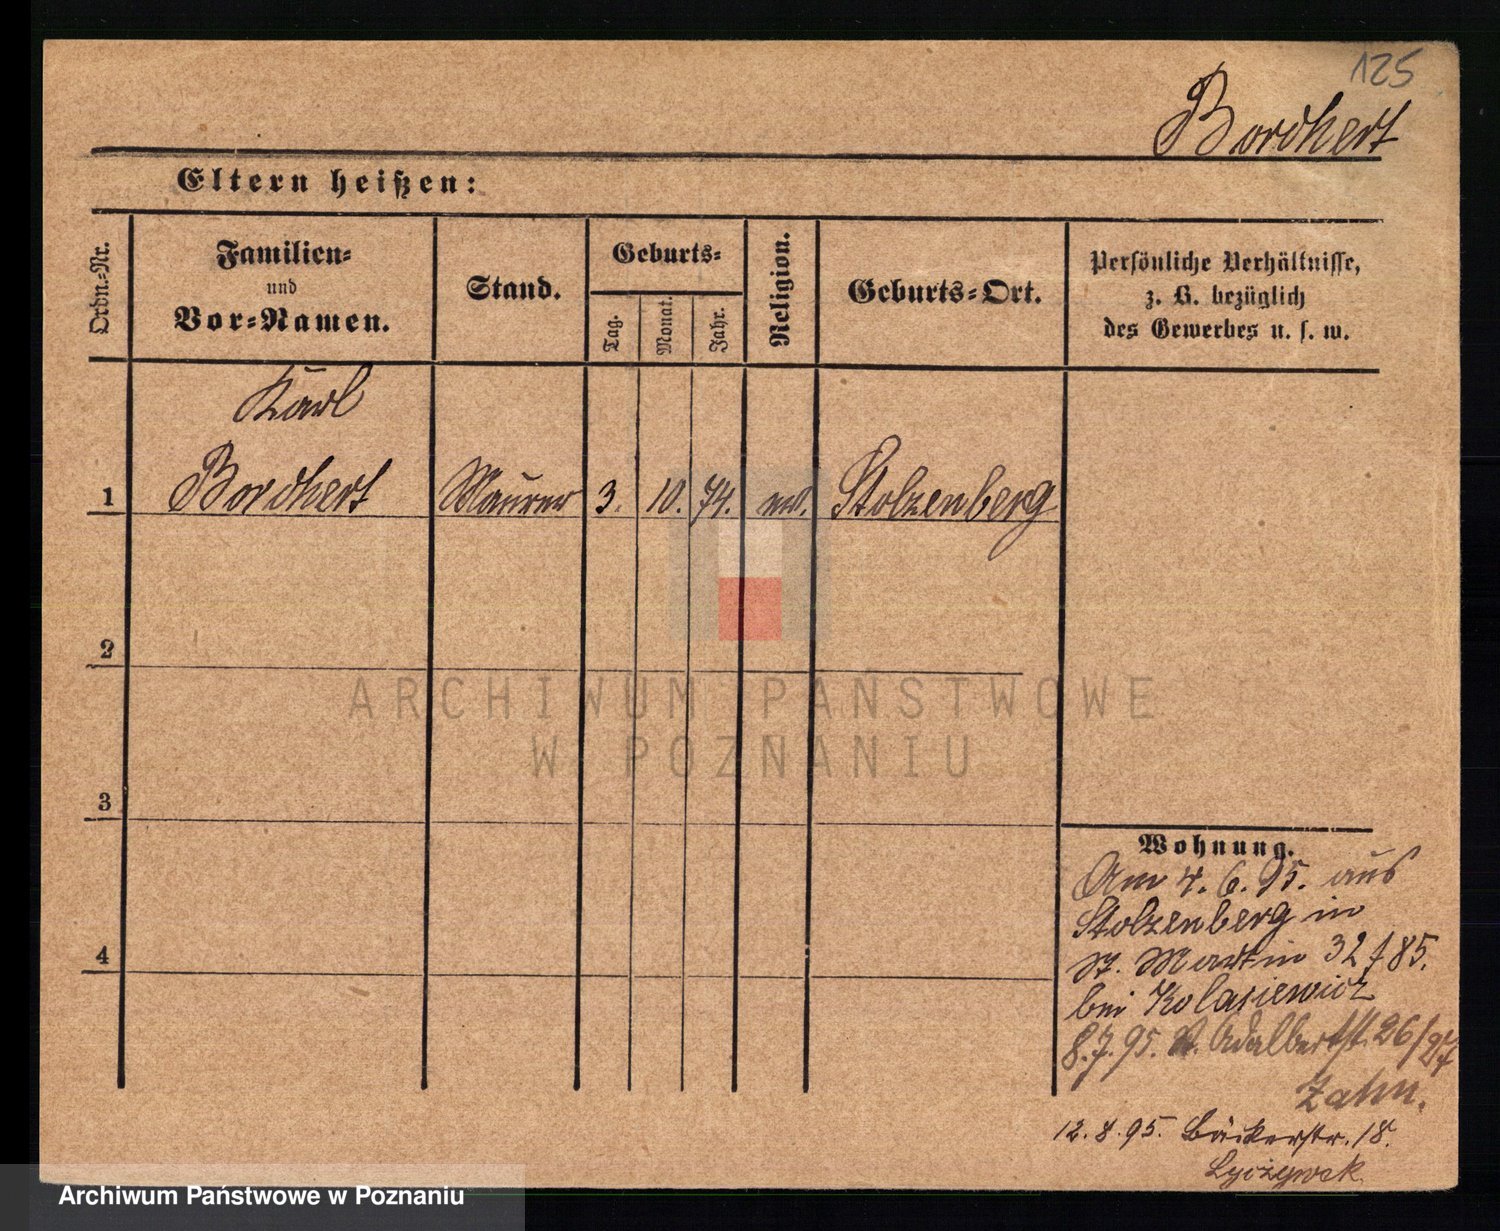 125
Borchert
Eltern heißen:
Ordn.-Nr.
Familien-
und
Vor-Namen.
Stand.
Geburts-
Tag.
Monat.
Jahr.
Religion.
Geburts-Ort.
Persönliche Verhältnisse,
z. B. bezüglich
des Gewerbes u. s. w.
Karl
1 Borchert Maurer 3. 10. 74. Stolzenberg
2
3
4
Wohnung.
Am 4. 6. 95. aus
Stolzenberg in
St. Martin 32 / 85.
bei Kolasiewicz
8.7.95. St. Adalbertst. 26/27
Zahn.
12. 8. 95. Bäckerstr. 18.
ARCHIWUM PAŃSTWOWE
W POZNANIU
Archiwum Państwowe w Poznaniu